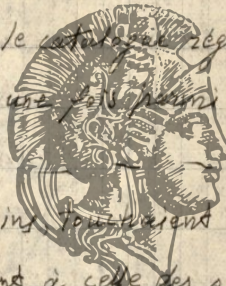 Le catalogue rég
une fois parmi
ins, tournoyent
nt à celle des